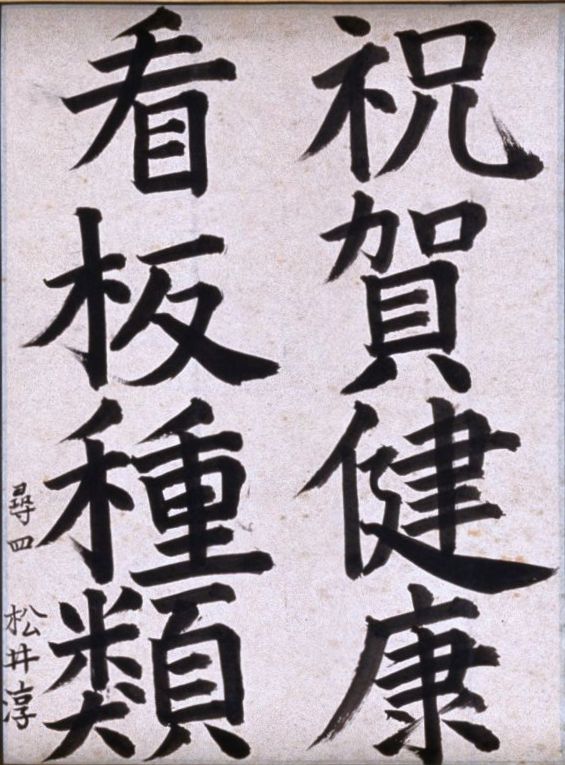 祝賀健康
看板種類
尋四 松井淳